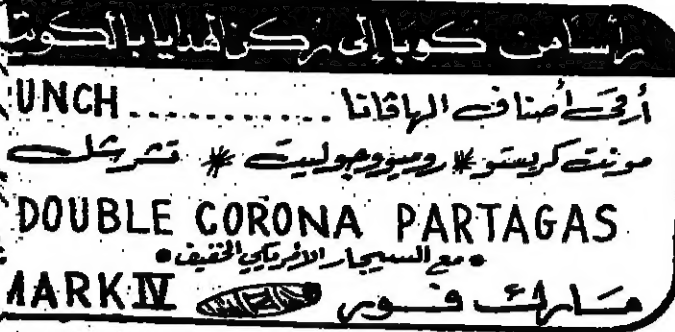 رأسا من كوبا إلى ركن الهدايا بالكويت
أرقى أصناف الهاڤانا ............ UNCH
مونت كريستو * روميو وجوليت * تشرشل
DOUBLE CORONA PARTAGAS
• مع السيجار الأمريكي الخفيف •
مارك فور MARK IV